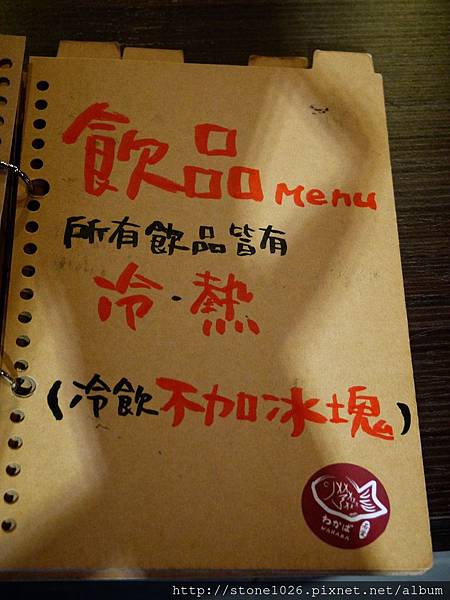 飲品 Menu
所有飲品皆有
冷・熱
(冷飲不加冰塊)
わかば
WAKABA
http://stone1026.pixnet.net/album